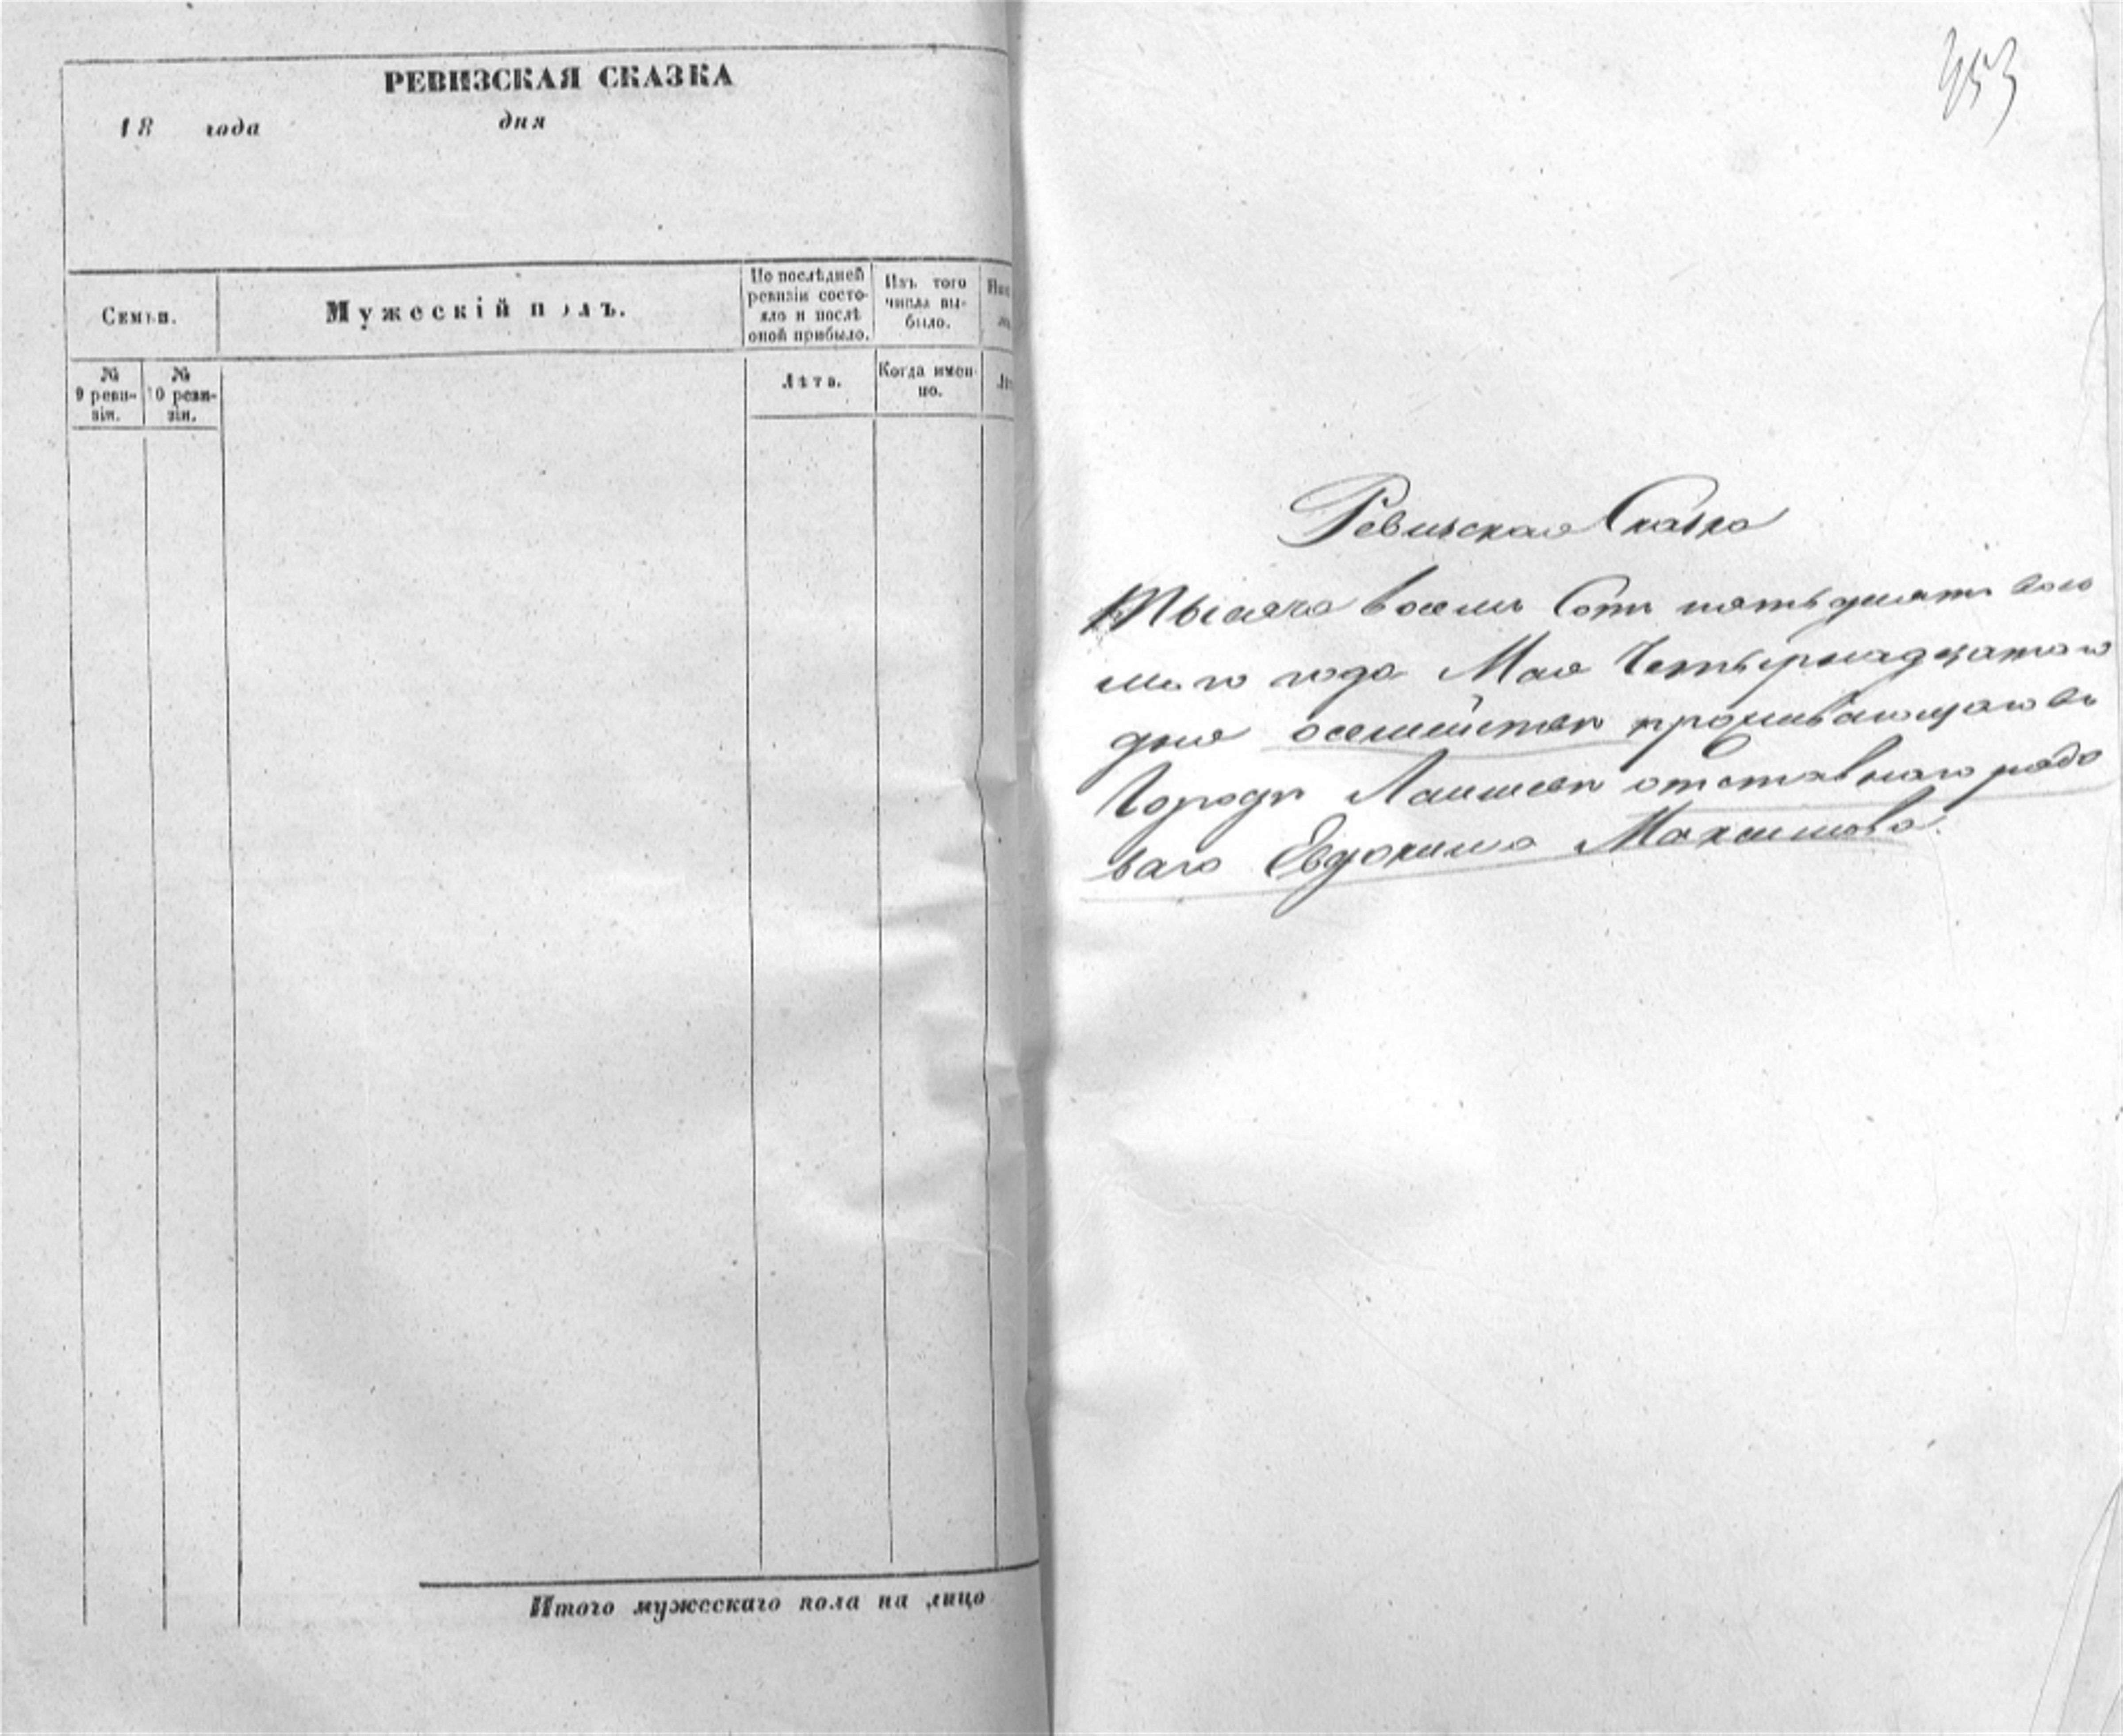 РЕВИЗСКАЯ СКАЗКА
18 года дня
Семьи.
Мужескій полъ.
По послѣдней
ревизіи состо-
яло и послѣ
оной прибыло.
Изъ того
числа вы-
было.
№
9 реви-
зіи.
№
10 реви-
зіи.
Лѣта.
Когда имен-
но.
Итого мужескаго пола на лицо
453
Ревизская Сказка
Тысяча восемь Сотъ пятьдесятъ вось
маго года Мая Четырнадцатаго
дня о семействѣ проживающаго въ
Городѣ Лаишевѣ отставнаго рядо
ваго Евдокима Максимова.